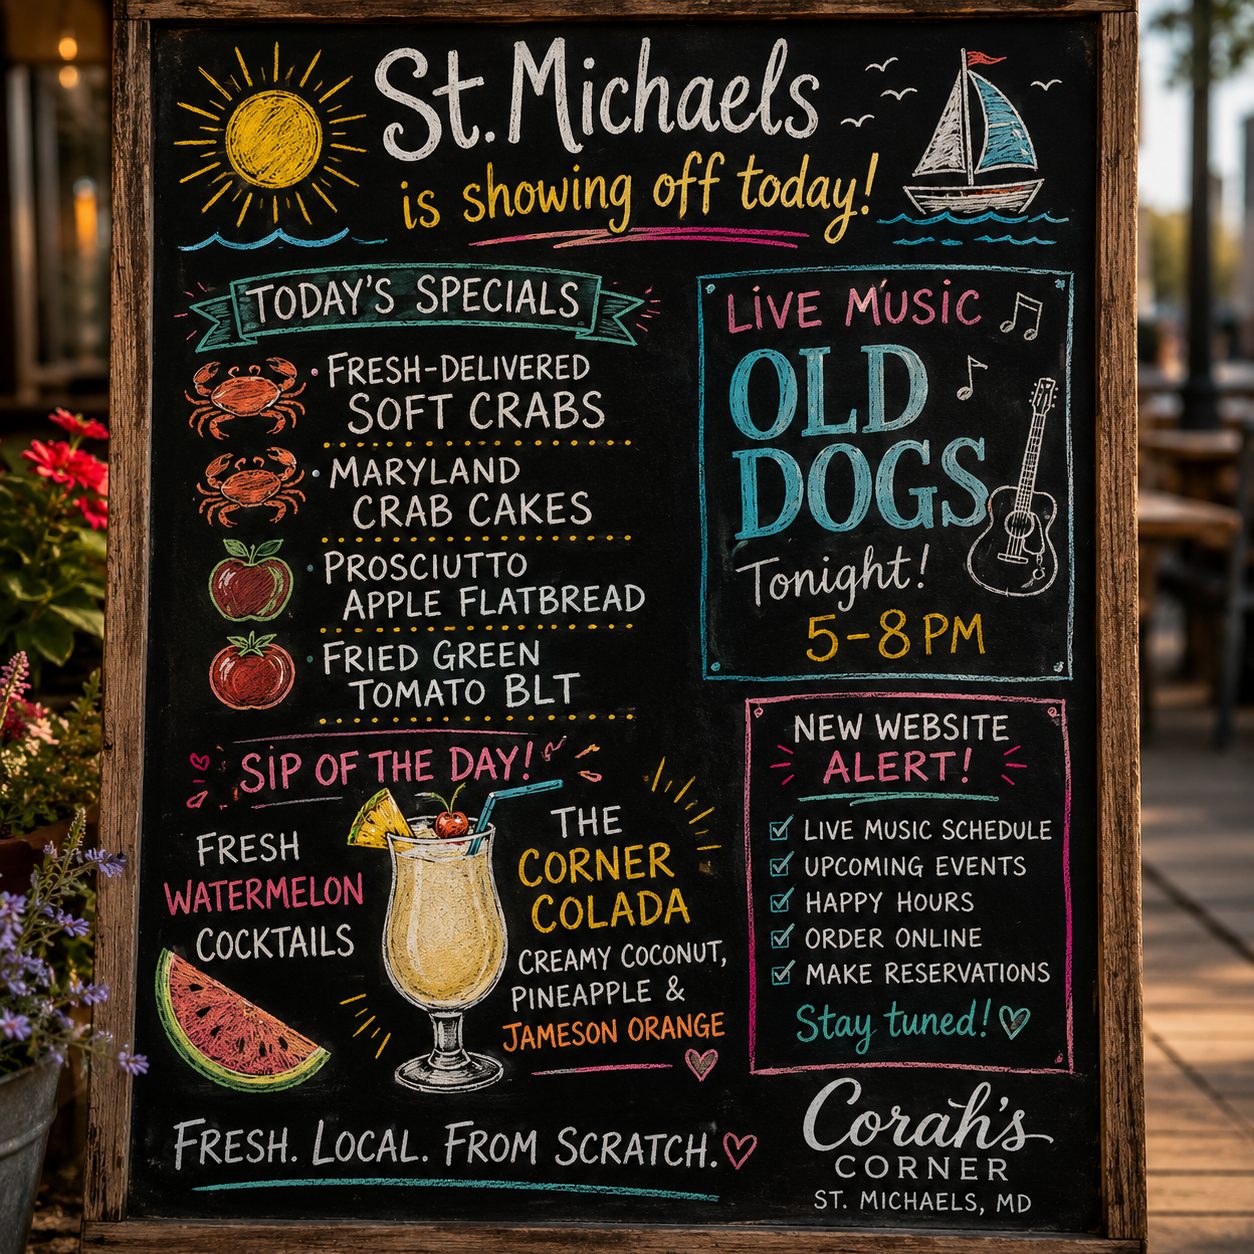 St. Michaels
is showing off today!
TODAY'S SPECIALS
• FRESH-DELIVERED
SOFT CRABS
• MARYLAND
CRAB CAKES
• PROSCIUTTO
APPLE FLATBREAD
• FRIED GREEN
TOMATO BLT
LIVE MUSIC
OLD
DOGS
Tonight!
5-8 PM
SIP OF THE DAY!
FRESH
WATERMELON
COCKTAILS
THE
CORNER
COLADA
CREAMY COCONUT,
PINEAPPLE &
JAMESON ORANGE
NEW WEBSITE
ALERT!
LIVE MUSIC SCHEDULE
UPCOMING EVENTS
HAPPY HOURS
ORDER ONLINE
MAKE RESERVATIONS
Stay tuned!
FRESH. LOCAL. FROM SCRATCH.
Corah's
CORNER
ST. MICHAELS, MD